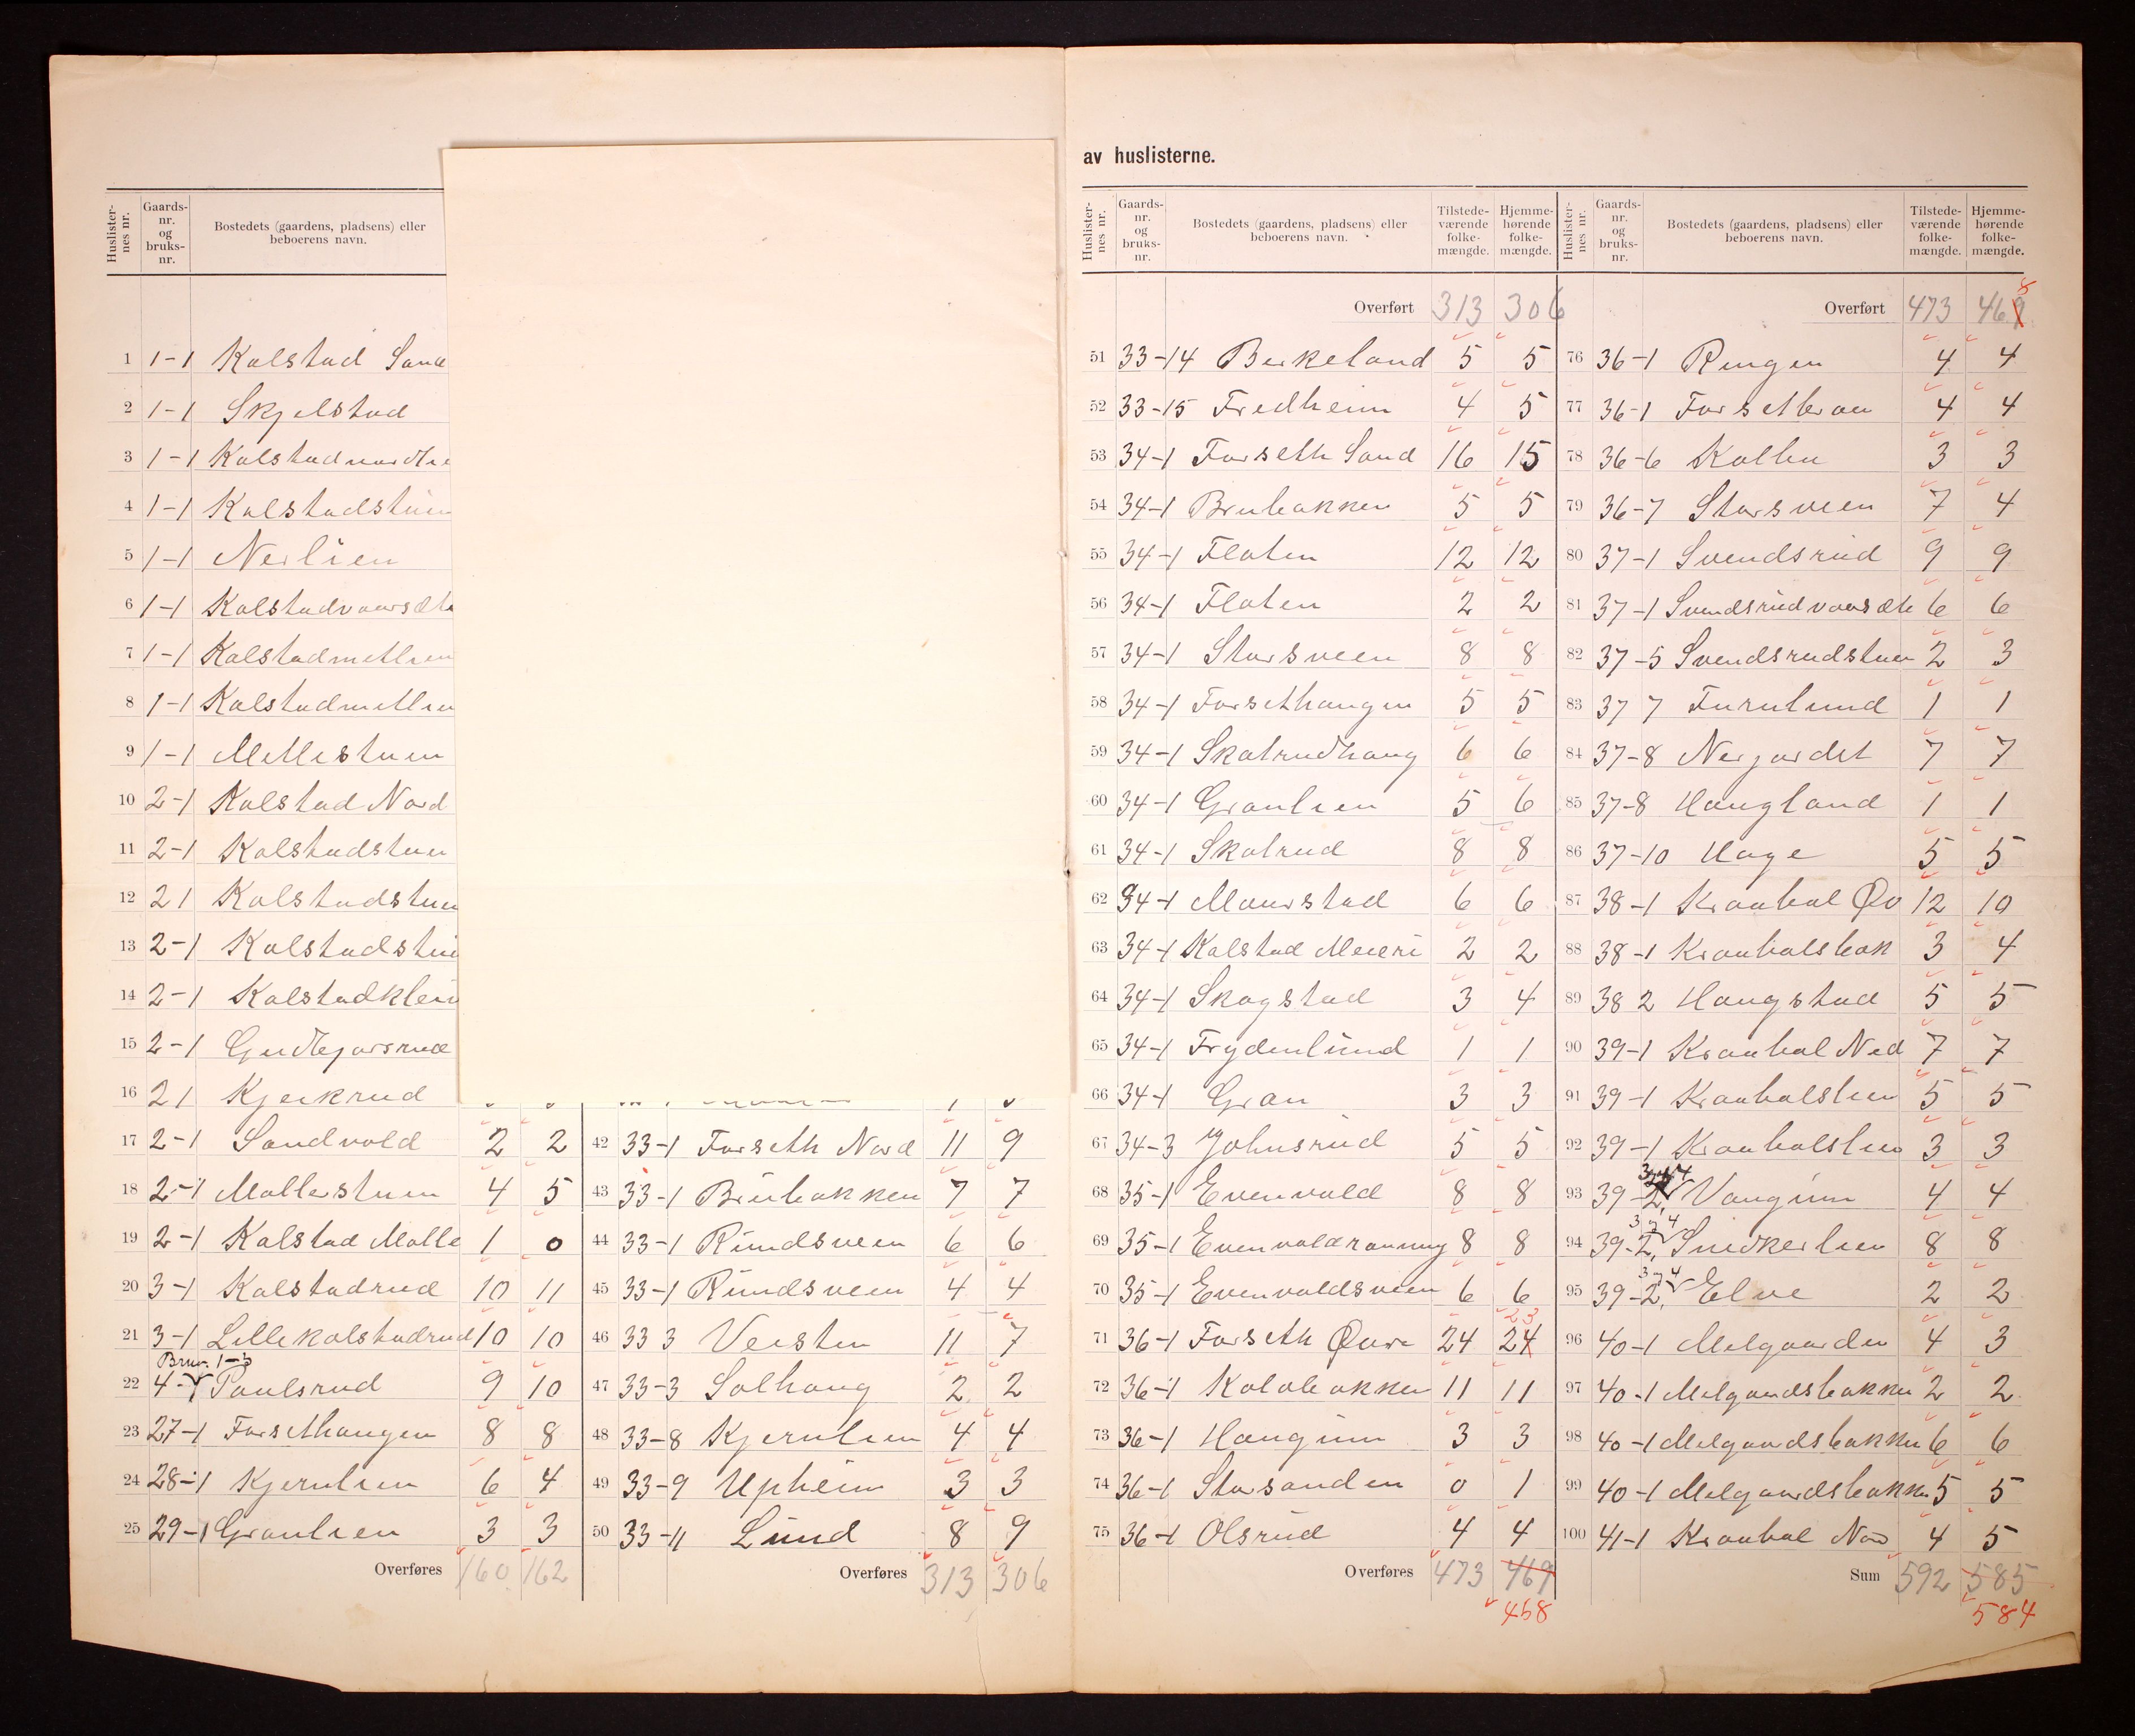 av huslisterne.
Huslister-nes nr. Gaards-nr. og bruks-nr. Bostedets (gaardens, pladsens) eller beboerens navn.
1 1-1 Kolstad Sønd
2 1-1 Skjelstad
3 1-1 Kolstadnordli
4 1-1 Kolstadstuen
5 1-1 Nerlien
6 1-1 Kolstadvaarsæte
7 1-1 Kolstadmetlien
8 1-1 Kolstadmetlien
9 1-1 Mellestuen
10 2-1 Kolstad Nord
11 2-1 Kolstadstuen
12 2 1 Kolstadstuen
13 2-1 Kolstadstue
14 2-1 Kolstadkleiv
15 2-1 Gudtejorsrud
16 2 1 Kjeikrud
17 2-1 Sandvold 2 2
18 2-1 Møllerstuen 4 5
19 2-1 Kolstad Mølle 1 0
20 3-1 Kolstadrud 10 11
21 3-1 Lillekolstadrud 10 10
Brno. 1-3
22 4-1 Paulsrud 9 10
23 27-1 Forsethaugen 8 8
24 28-1 Kjernlien 6 4
25 29-1 Granlien 3 3
Overføres 160 162
42 33-1 Forseth Nord 11 9
43 33-1 Brubakken 7 7
44 33-1 Rundsveen 6 6
45 33-1 Rundsveen 4 4
46 33 3 Veisten 11 7
47 33-3 Solhaug 2 2
48 33-8 Kjernlien 4 4
49 33-9 Upheim 3 3
50 33-11 Lund 8 9
Overføres 313 306
Huslister-nes nr. Gaards-nr. og bruks-nr. Bostedets (gaardens, pladsens) eller beboerens navn. Tilstede-værende folke-mængde. Hjemme-hørende folke-mængde.
Overført 313 306
51 33-14 Berkeland 5 5
52 33-15 Fredheim 4 5
53 34-1 Forseth Sønd 16 15
54 34-1 Brubakken 5 5
55 34-1 Floten 12 12
56 34-1 Floten 2 2
57 34-1 Storsveen 8 8
58 34-1 Forsethaugen 5 5
59 34-1 Skolrudhaug 6 6
60 34-1 Granlien 5 6
61 34-1 Skolrud 8 8
62 34-1 Maurstad 6 6
63 34-1 Kolstad Meieri 2 2
64 34-1 Skogstad 3 4
65 34-1 Frydenlund 1 1
66 34-1 Gran 3 3
67 34-3 Johnsrud 5 5
68 35-1 Evenvold 8 8
69 35-1 Evenvoldrønning 8 8
70 35-1 Evenvoldsveen 6 6
23
71 36-1 Forseth Øvre 24 24
72 36-1 Kolobakken 11 11
73 36-1 Haugum 3 3
74 36-1 Storsanden 0 1
75 36-1 Olsrud 4 4
Overføres 473 469
468
Huslister-nes nr. Gaards-nr. og bruks-nr. Bostedets (gaardens, pladsens) eller beboerens navn. Tilstede-værende folke-mængde. Hjemme-hørende folke-mængde.
8
Overført 473 469
76 36-1 Ringen 4 4
77 36-1 Forsetbroen 4 4
78 36-6 Kolbu 3 3
79 36-7 Storsveen 7 4
80 37-1 Svendsrud 9 9
81 37-1 Svendsrudvaarsæte 6 6
82 37-5 Svendsrudstuen 2 3
83 37 7 Furulund 1 1
84 37-8 Nerjordet 7 7
85 37-8 Haugland 1 1
86 37-10 Hage 5 5
87 38-1 Kraabøl Øv 12 10
88 38-1 Kraabølsbak 3 4
89 38 2 Haugstad 5 5
90 39-1 Kraabøl Ned 7 7
91 39-1 Kraabølslien 5 5
92 39-1 Kraabølslien 3 3
93 39-2, Vangum 4 4
3 og 4
94 39-2, Snedkerlien 8 8
3 og 4
95 39-2, Elve 2 2
96 40-1 Melgaarden 4 3
97 40-1 Melgaardsbakken 2 2
98 40-1 Melgaardsbakken 6 6
99 40-1 Melgaardsbakken 5 5
100 41-1 Kraabøl No 4 5
Sum 592 585
584